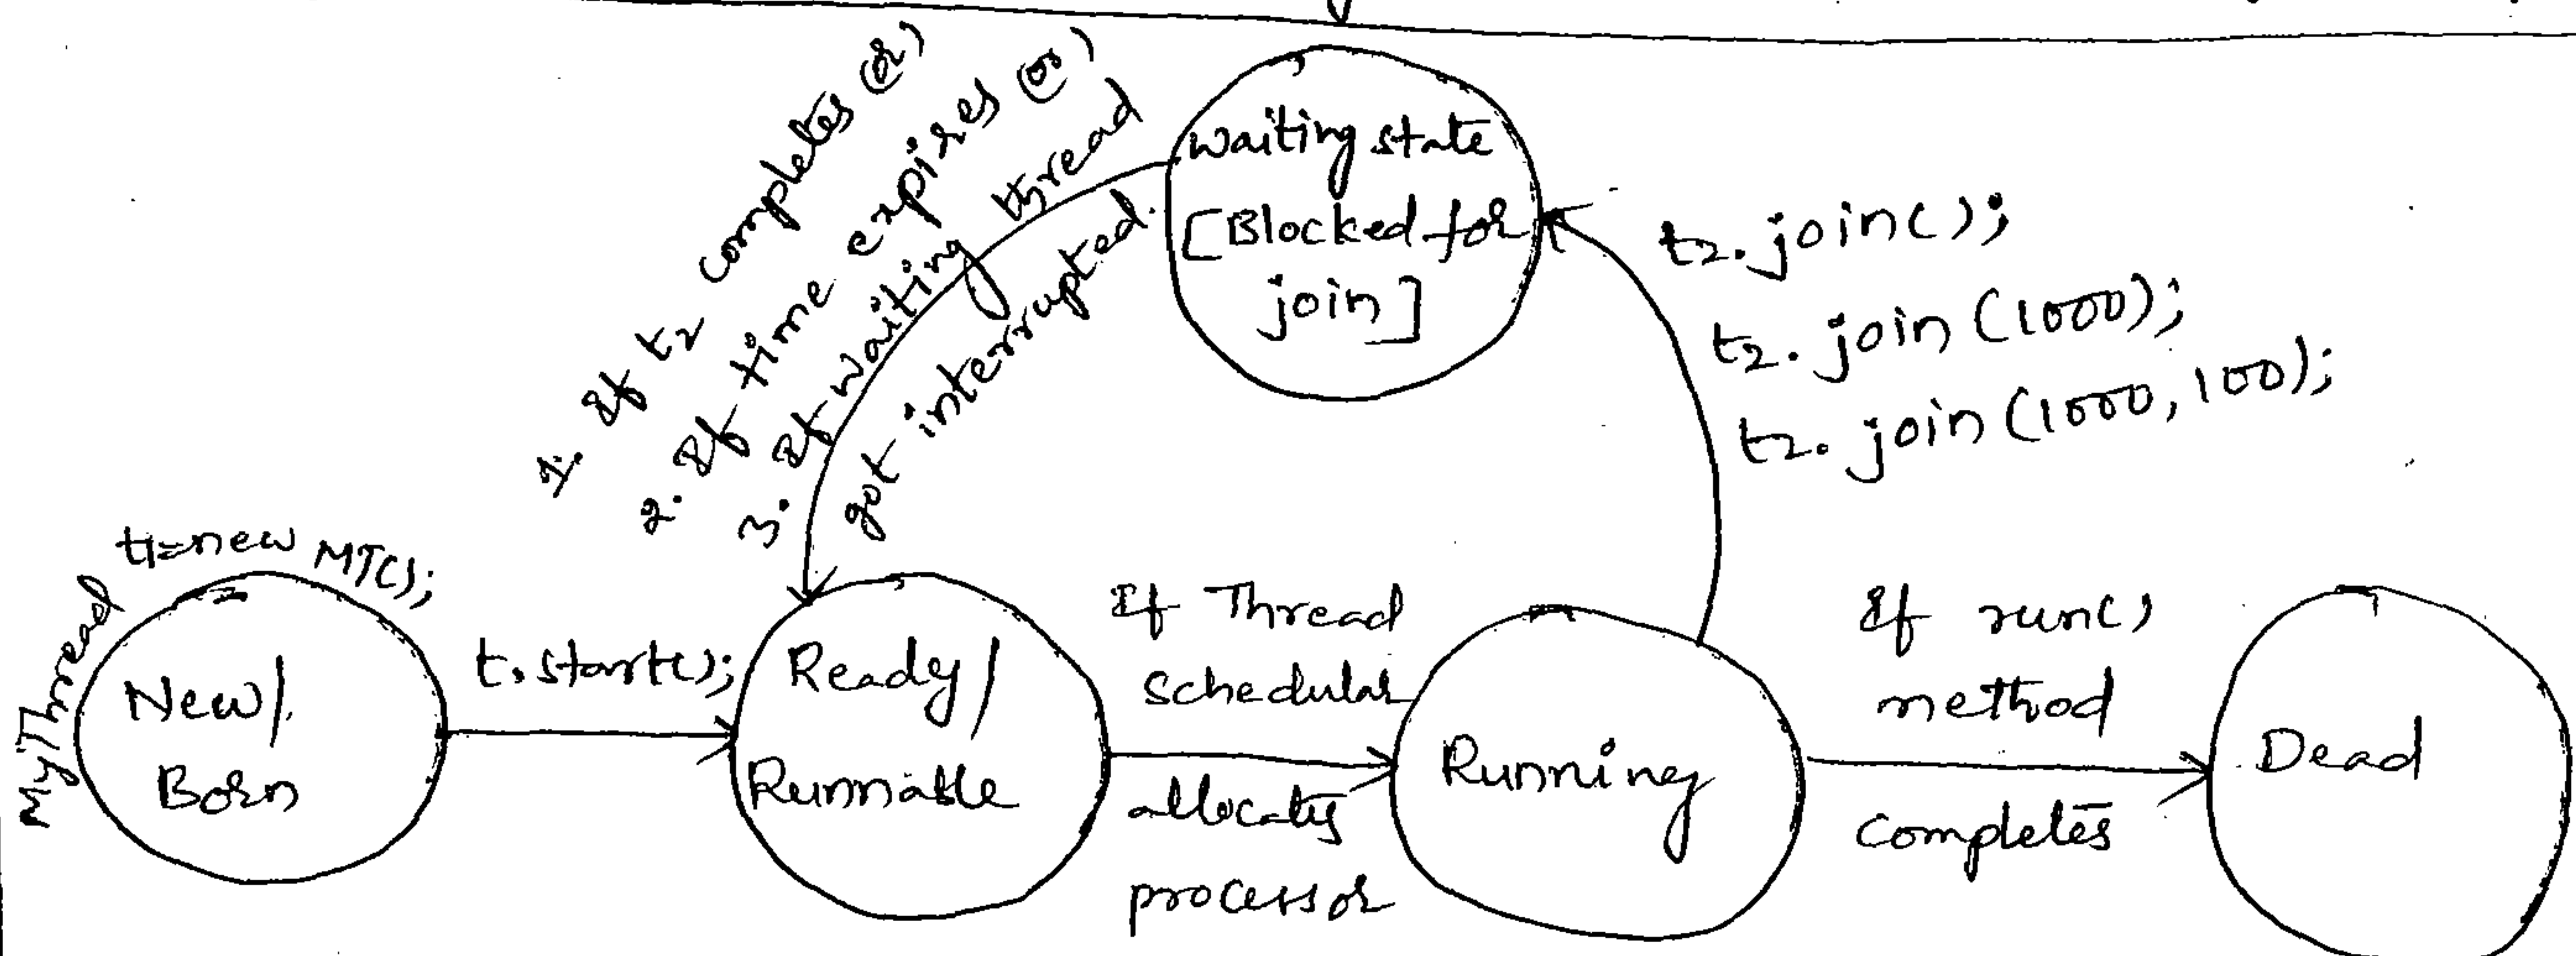 1. If t2 completes (or)
2. If time expires (or)
3. If waiting thread
got interrupted.
Waiting state
[Blocked for
join]
t2.join();
t2.join (1000);
t2.join (1000, 100);
MyThread t1=new MT();
New/
Born
t.start();
Ready/
Runnable
If Thread
Schedular
allocates
processor
Running
If run()
method
completes
Dead